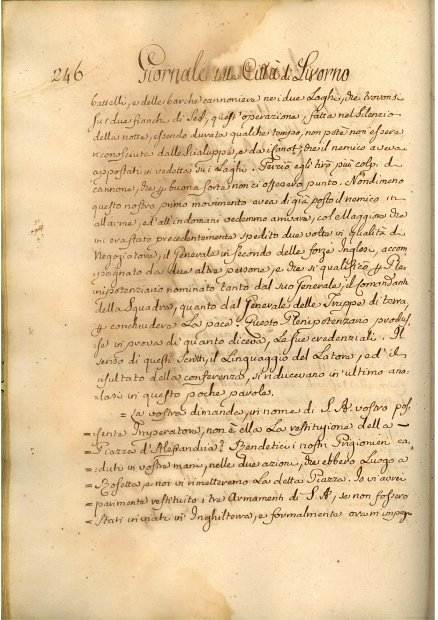 246 Giornale della Città di Livorno
battelli, e delle barche cannoniere nei due Laghi, che trovonsi
sui due fianchi di quest'operazione, fatta nel silenzio
della notte, essendo durata qualche tempo, non potè non essere
riconosciuta dalle Scialuppe, e da canot, che il nemico aveva
appostati in vedetta sui Laghi. Perciò egli tirò più colpi di
cannone, che buona sorte non ci offesero punto. Nondimeno
questo nostro primo movimento avea di già posto il nemico in
allarme, ed all'indomani vedemmo arrivare, col Maggiore che
mi era stato precedentemente spedito due volte in qualità di
Negoziatore, il Generale in secondo delle forze Inglesi, accom
pagnato da due altre persone, e che si qualificò Ple
nipotenziario nominato tanto dal suo Generale, il Comandante
della Squadra, quanto dal Generale delle Truppe di terra,
concludere La pace. Questo Plenipotenziario produs
se in prova di quanto diceva, Le sue credenziali. Il
senso di questi scritti, il Linguaggio del Latore, ed il
risultato della conferenza, si riducevano in ultimo ana
lasi in queste poche parole.
= La vostra dimanda, in nome di S. A. vostro pos
sente Imperatore, non è ella La restituzione della
= Piazza d'Alessandria? Rendeteci i nostri Prigionieri ca
= duti in vostre mani, nelle due azioni, che ebbero Luogo a
= Rosetta, e noi vi rimetteremo La detta Piazza. Io vi avrei
= parimente restituito i tre Armamenti di S. A., se non fossero
= stati inviati in Inghilterra, e formalmente ora m'impego